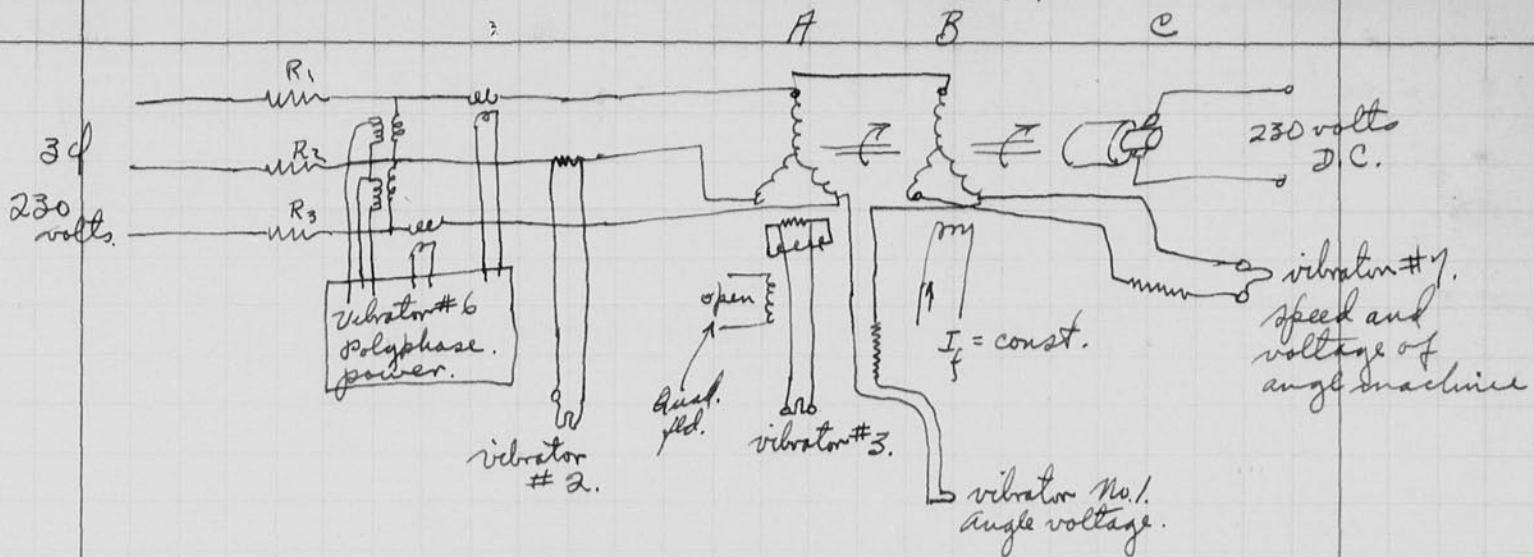 A B C
R1
3φ
R2
230 volts.
R3
230 volts
D.C.
vibrator #6
Polyphase.
power.
open
If = const.
vibrator #7.
speed and
voltage of
angle machine
Quad.
fld.
vibrator
#2.
vibrator #3.
vibrator No. 1.
Angle voltage.